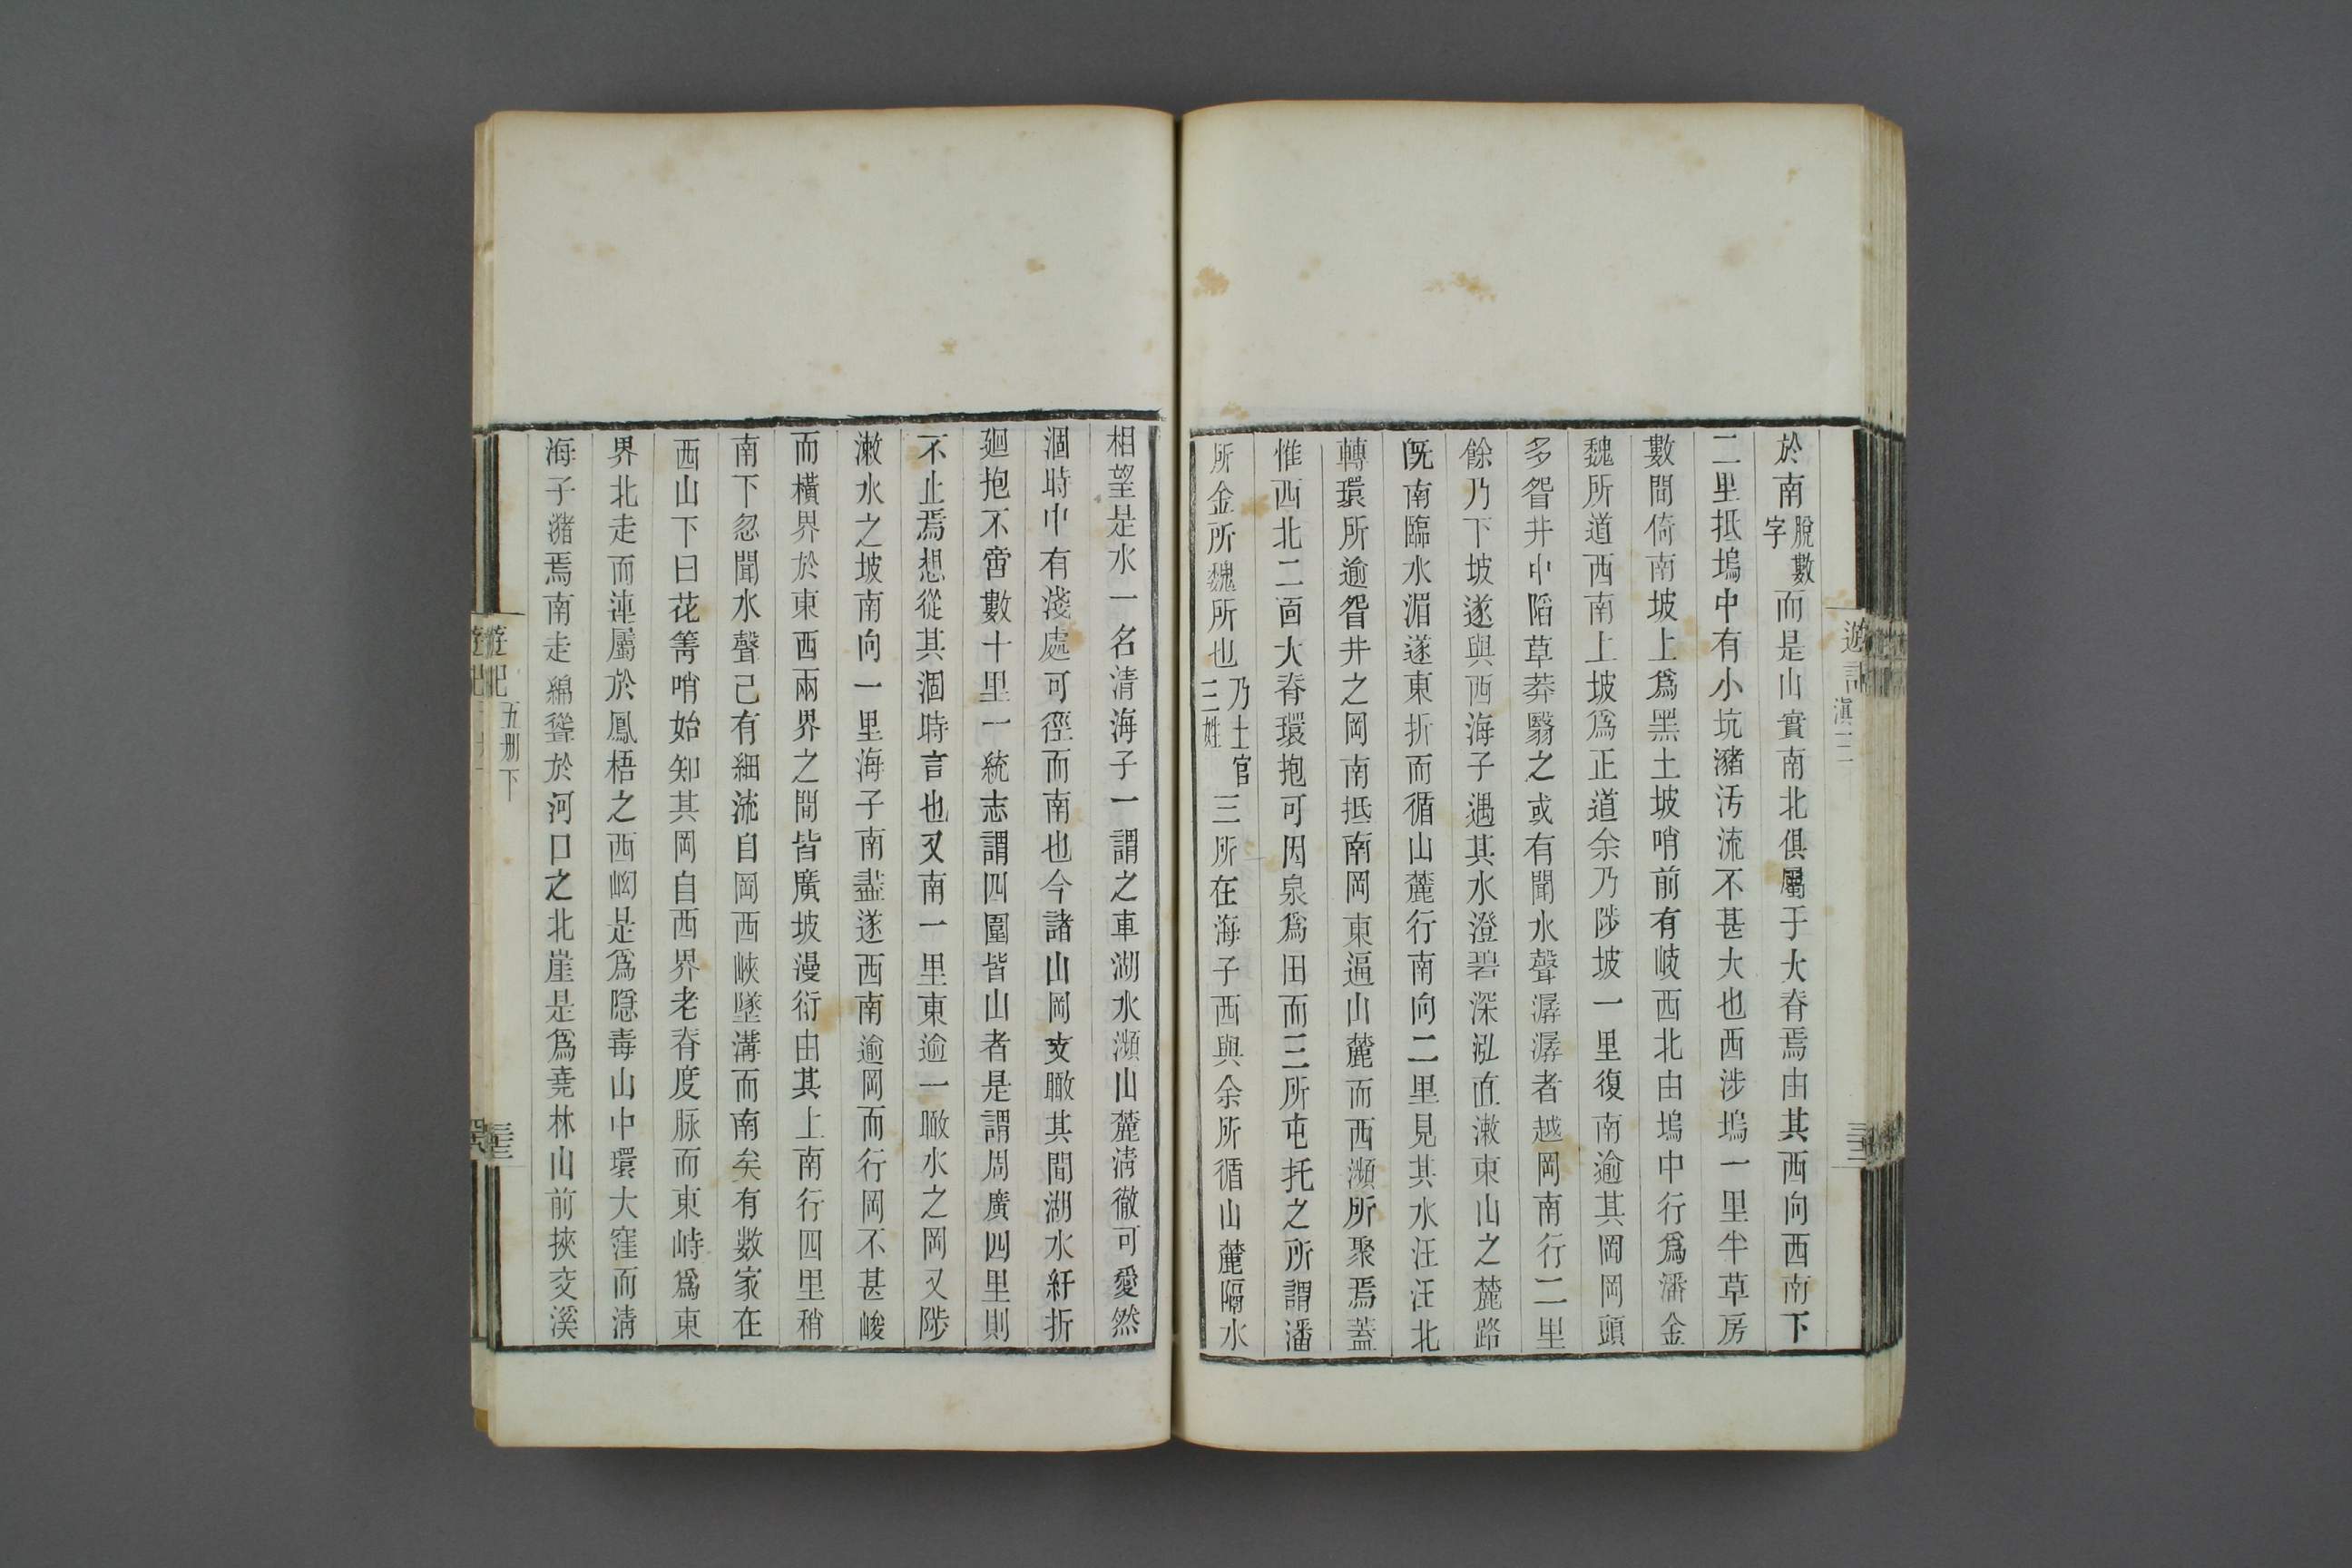 於南脫數字而是山實南北俱屬于大脊焉由其西向西南下
二里抵塢中有小坑瀦汚流不甚大也西涉塢一里半草房
數間倚南坡上爲黑土坡哨前有岐西北由塢中行爲潘金
魏所道西南上坡爲正道余乃陟坡一里復南逾其岡岡頭
多眢井中陷草莽翳之或有聞水聲潺潺者越岡南行二里
餘乃下坡遂與西海子遇其水澄碧深泓直漱東山之麓路
旣南臨水湄遂東折而循山麓行南向二里見其水汪汪北
轉環所逾眢井之岡南抵南岡東逼山麓而西瀕所聚焉蓋
惟西北二面大脊環抱可因泉爲田而三所屯托之所謂潘
所金所魏所也乃土官三姓三所在海子西與余所循山麓隔水
相望是水一名清海子一謂之車湖水瀕山麓清徹可愛然
涸時中有淺處可徑而南也今諸山岡支瞰其間湖水紆折
廻抱不啻數十里一統志謂四圍皆山者是謂周廣四里則
不止焉想從其涸時言也又南一里東逾一瞰水之岡又陟
漱水之坡南向一里海子南盡遂西南逾岡而行岡不甚峻
而橫界於東西兩界之間皆廣坡漫衍由其上南行四里稍
南下忽聞水聲己有細流自岡西峽墜溝而南矣有數家在
西山下曰花箐哨始知其岡自西界老脊度脉而東峙爲東
界北走而連屬於鳳梧之西岣是爲隱毒山中環大窪而清
海子瀦焉南走綿聳於河口之北崖是爲堯林山前挾交溪
遊記
滇二
遊記
五册下